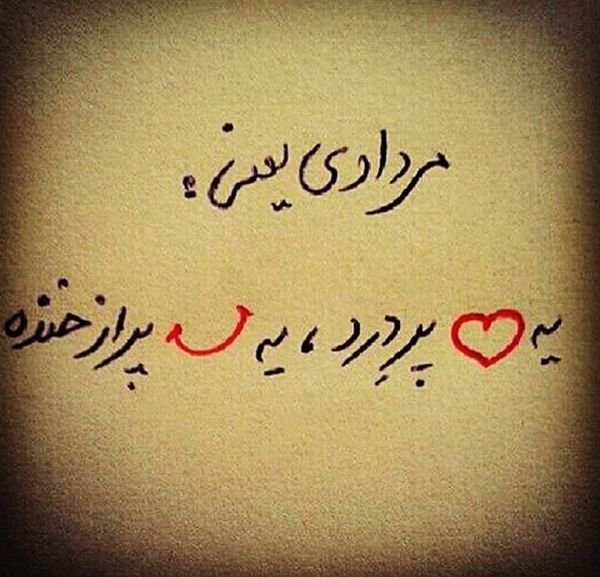 مردادی یعنی :
یه ♡ پر درد ، یه ‿ پر از خنده